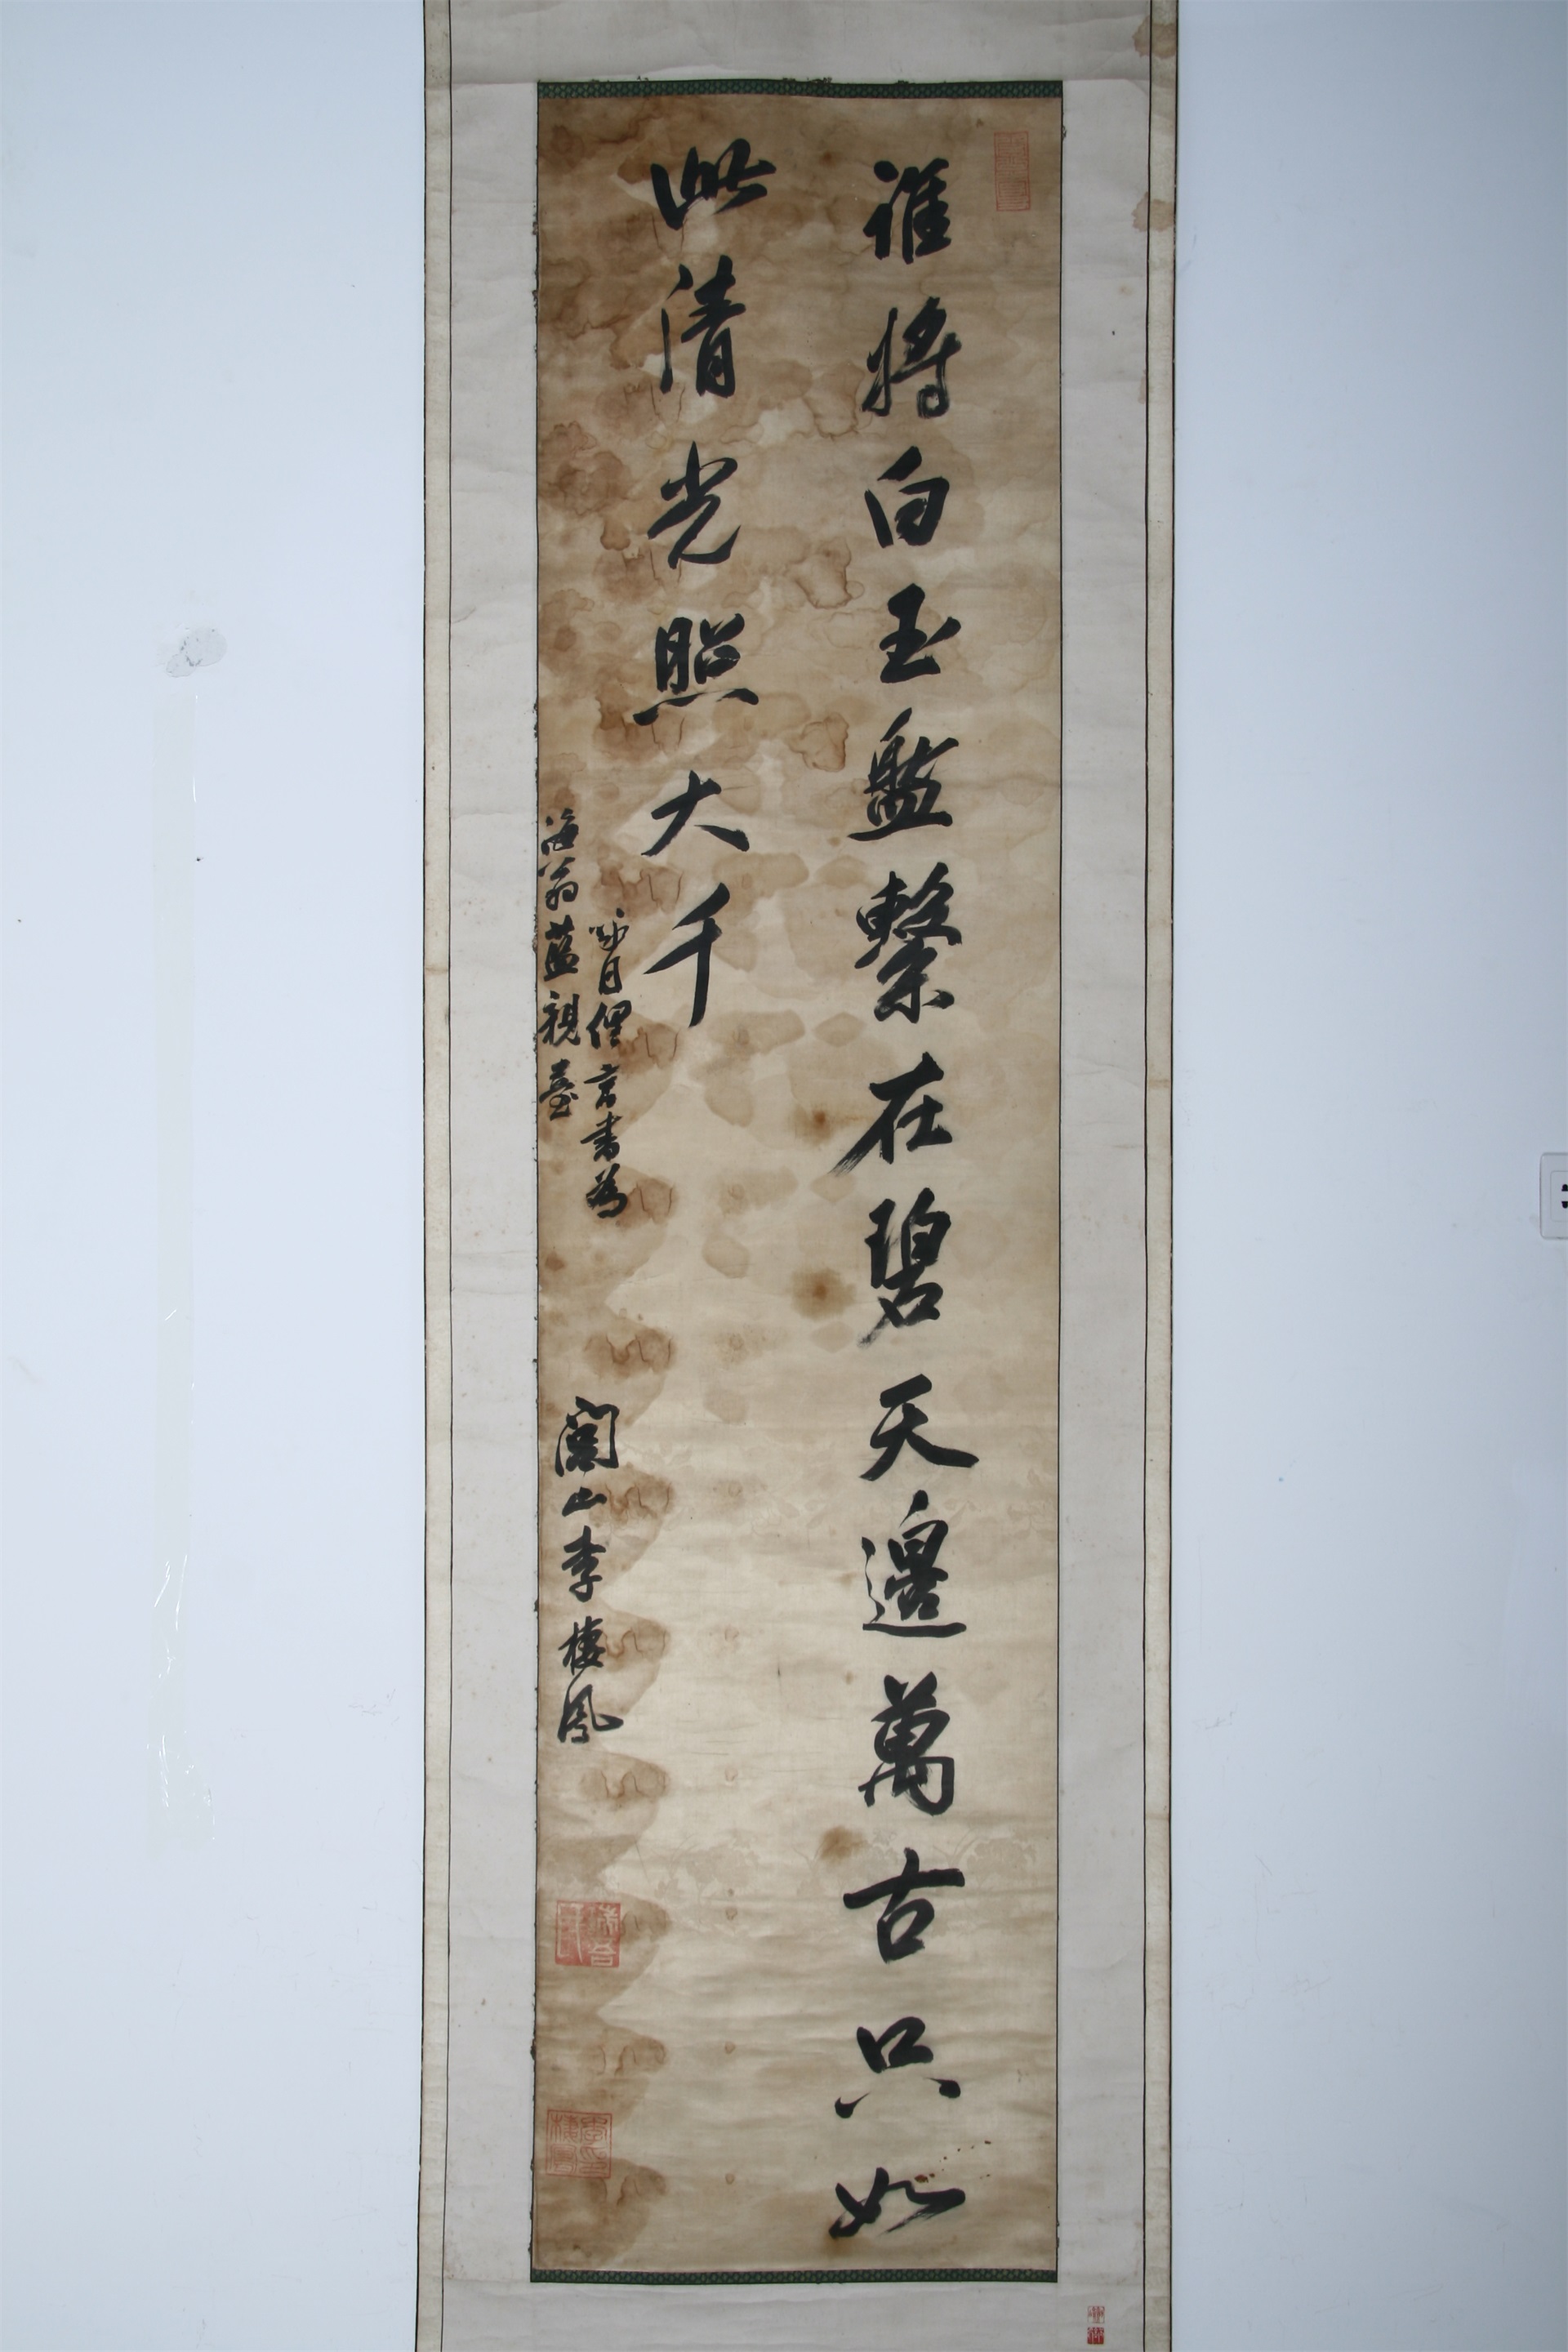 誰將白玉盤繫在碧天邊萬古只如
此清光照大千
咏月俚言書為
海翁藍親臺
閭山李棲鳳